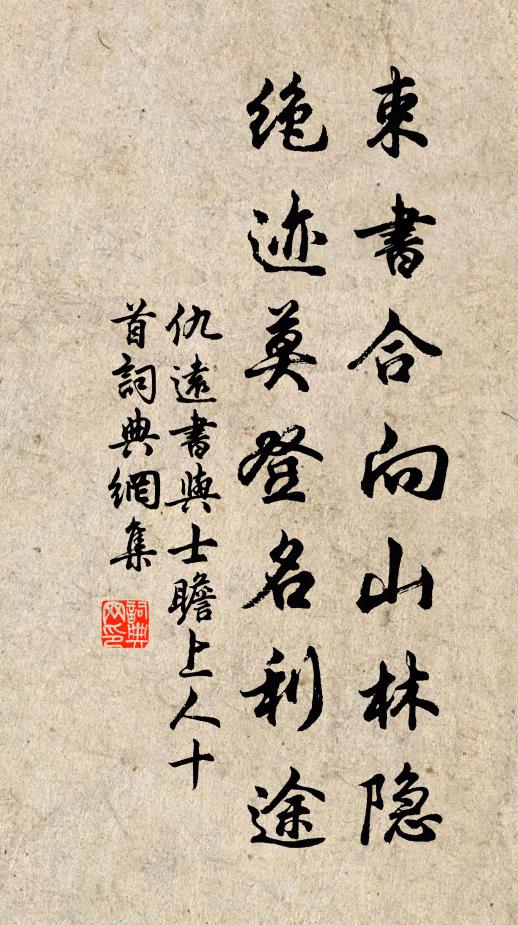 束書合向山林隐
绝迹莫登名利途
仇遠書與士瞻上人十
首詞典網集
詞典
网印